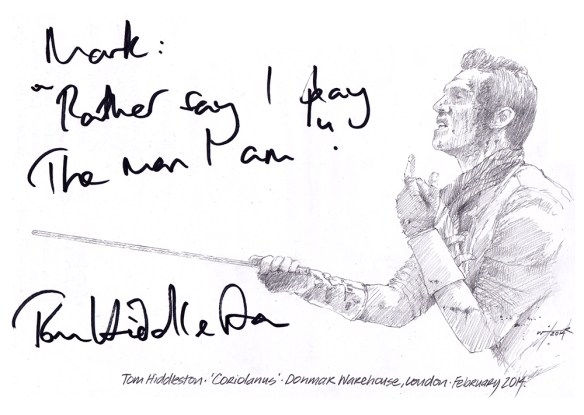 Mark:
"Rather say I play
The man I am".
Tom Hiddleston
Tom Hiddleston · 'Coriolanus' · Donmar Warehouse, London · February 2014.